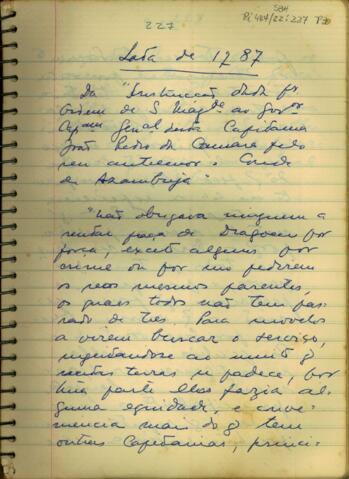 227
SBH
Pi 447/22:227 P
Lata de 1787
Da "Instrucção dada pr
Ordem de S Magde ao Govor
Capam Genal desta Capitania
João Pedro da Camara pelo
seu antressor o Conde
de Azambuja"
"não obrigava ninguem a
sentar praça de Dragoens por
força, exceto alguns por
crime ou por mo pedirem
os seos mesmos parentes,
os quaes todos não tem pas
sado de tres. Para movelos
a virem buscar o serviço,
sugeitandose ao muito q
nestas terras se padece, por
hũa parte elles fazia al
guma equidade, e conve-
niencia mais do q tem
outras Capitanias, princi-